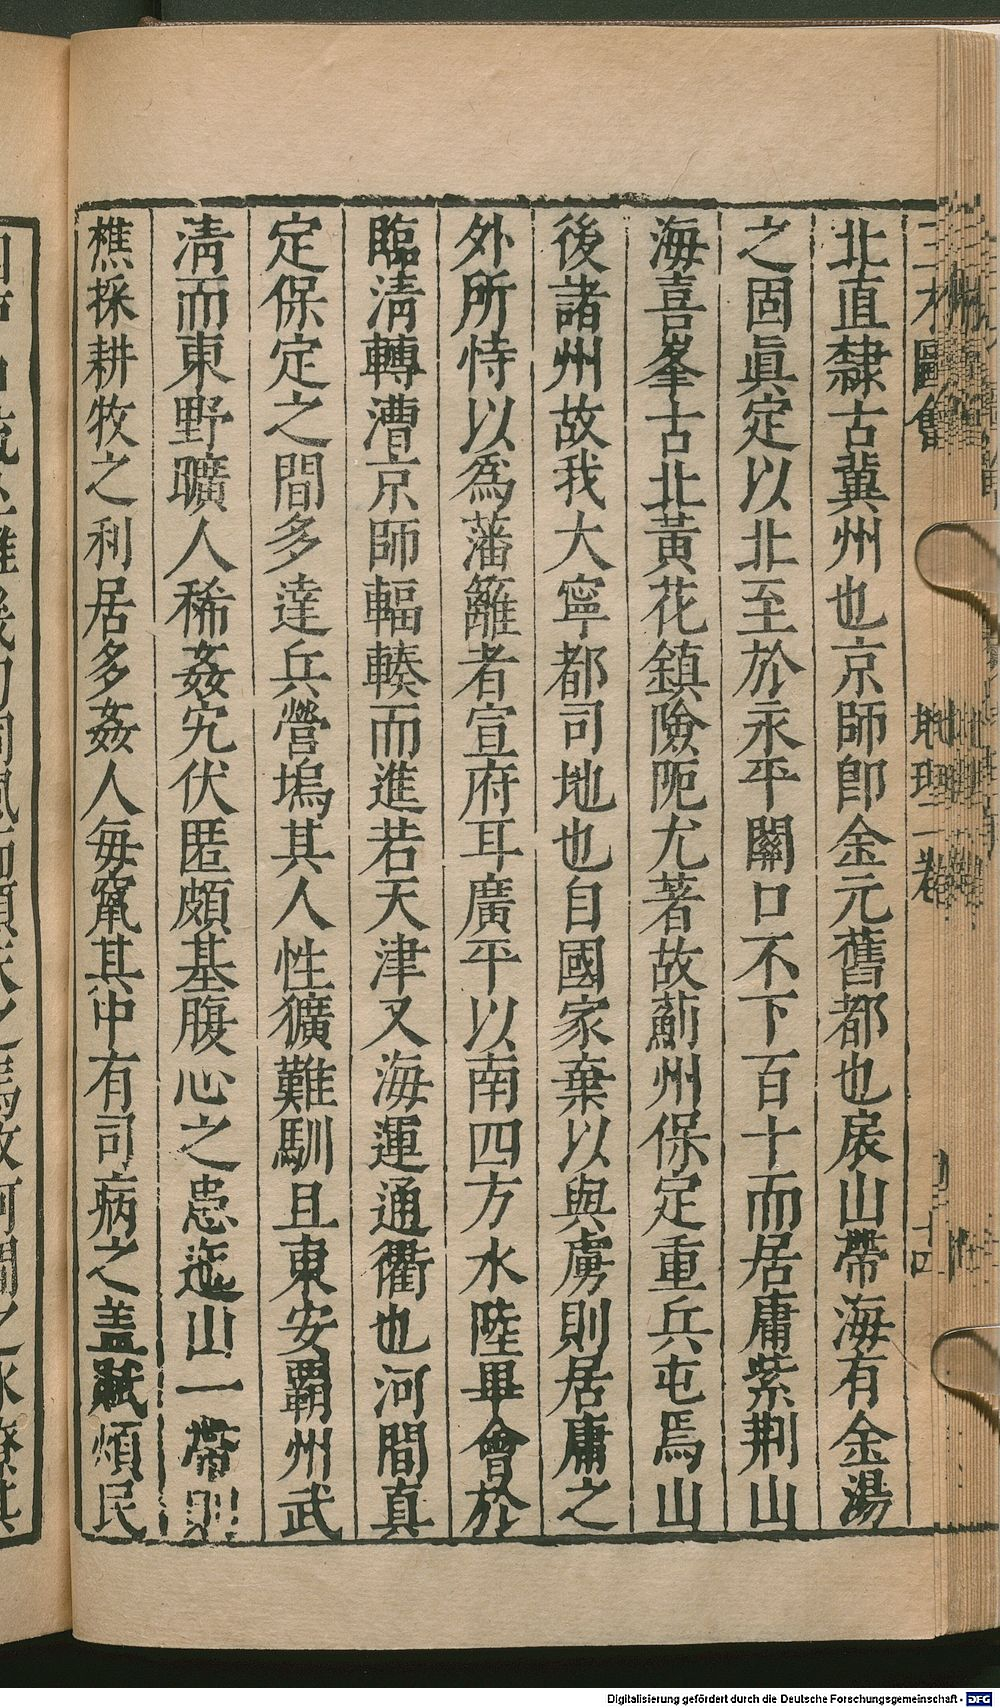 三才圖會 地理一卷 十四
北直隸古冀州也京師卽金元舊都也扆山帶海有金湯
之固眞定以北至於永平關口不下百十而居庸紫荆山
海喜峯古北黃花鎮險阨尤著故薊州保定重兵屯焉山
後諸州故我大寧都司地也自國家棄以與虜則居庸之
外所恃以爲藩籬者宣府耳廣平以南四方水陸畢會於
臨淸轉漕京師輻輳而進若天津又海運通衢也河間真
定保定之間多達兵營塢其人性獷難馴且東安覇州武
淸而東野曠人稀姦宄伏匿頗基腹心之患迤山一帶則
樵採耕牧之利居多姦人每竄其中有司病之盖賦煩民
Digitalisierung gefördert durch die Deutsche Forschungsgemeinschaft - DFG